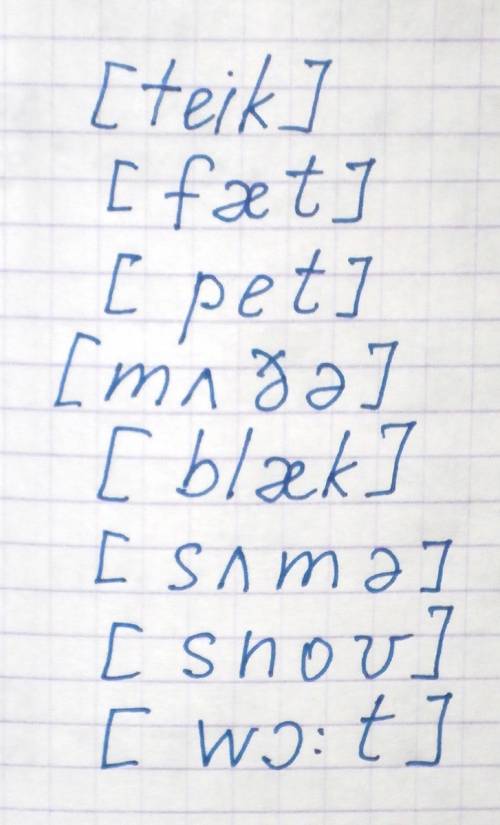 [teik]
[fæt]
[pet]
[mʌðə]
[blæk]
[sʌmə]
[snoʊ]
[wɔ:t]